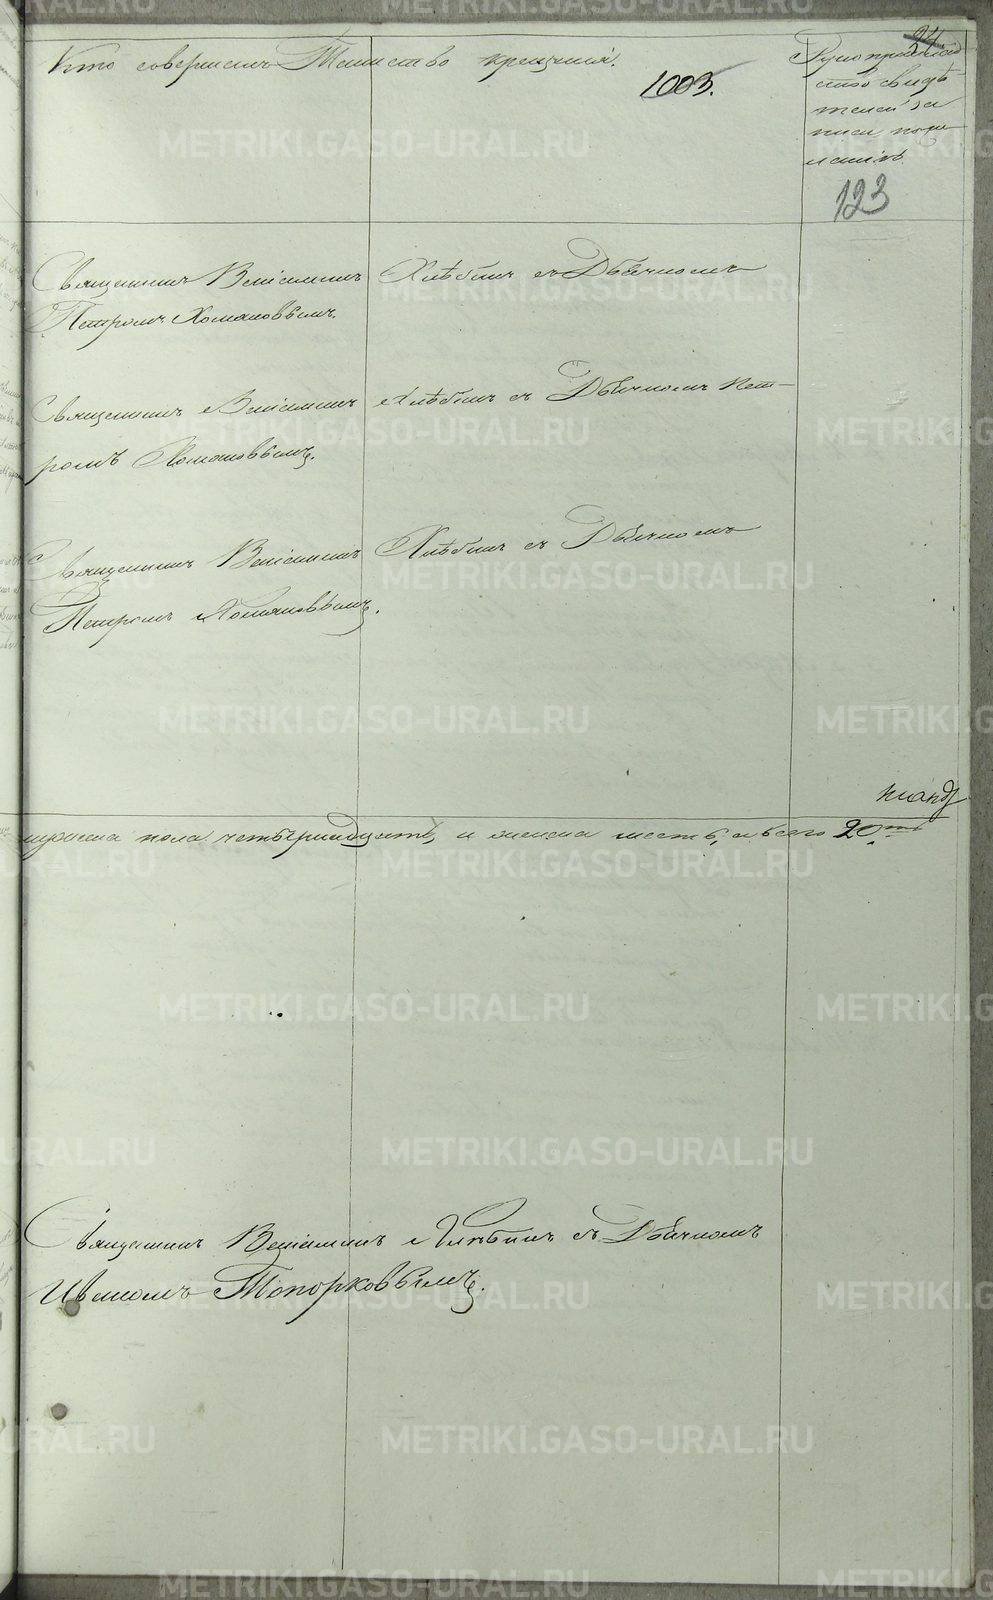 24
Кто совершилъ Таинство крещенія.
1003.
Рукоприкладство свидѣ
телей за
писи по же
ланію
123
Священникъ Веніаминъ Хлѣбинъ съ Дьячкомъ
Петромъ Хомяковымъ.
Священникъ Веніаминъ Хлѣбинъ съ Дьячкомъ Пет-
ромъ Хомяковымъ.
Священникъ Веніаминъ Хлѣбинъ съ Дьячкомъ
Петромъ Хомяковымъ.
мужеска пола четырнадцать, и женска шесть, а всего 20ть
Священникъ Веніаминъ Хлѣбинъ съ Дьячкомъ
Иваномъ Топорковымъ.
METRIKI.GASO-URAL.RU